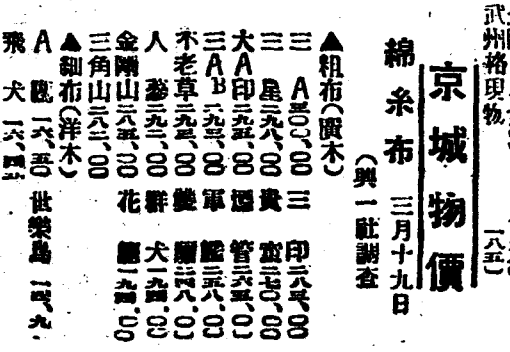 武州格現物
一八五）
京城物價
綿糸布 三月十九日
（興一社調査
▲粗布（廣木）
三A 三〇〇、〇〇 三印 二八五、〇〇
三星 二九八、〇〇 貴宝 二七〇、〇〇
大A印 二九五、〇〇 煙管 二六五、〇〇
三AB 二九三、〇〇 軍艦 二五八、〇〇
不老草 二九五、〇〇 雙 二四八、〇〇
人蔘 二九二、〇〇 群犬 一九四、〇〇
金剛山 二八五、〇〇 花 一九四、〇〇
三角山 二八二、〇〇
▲細布（洋木）
A 一六、五〇 世樂鳥 一四、九
飛犬 一六、四五